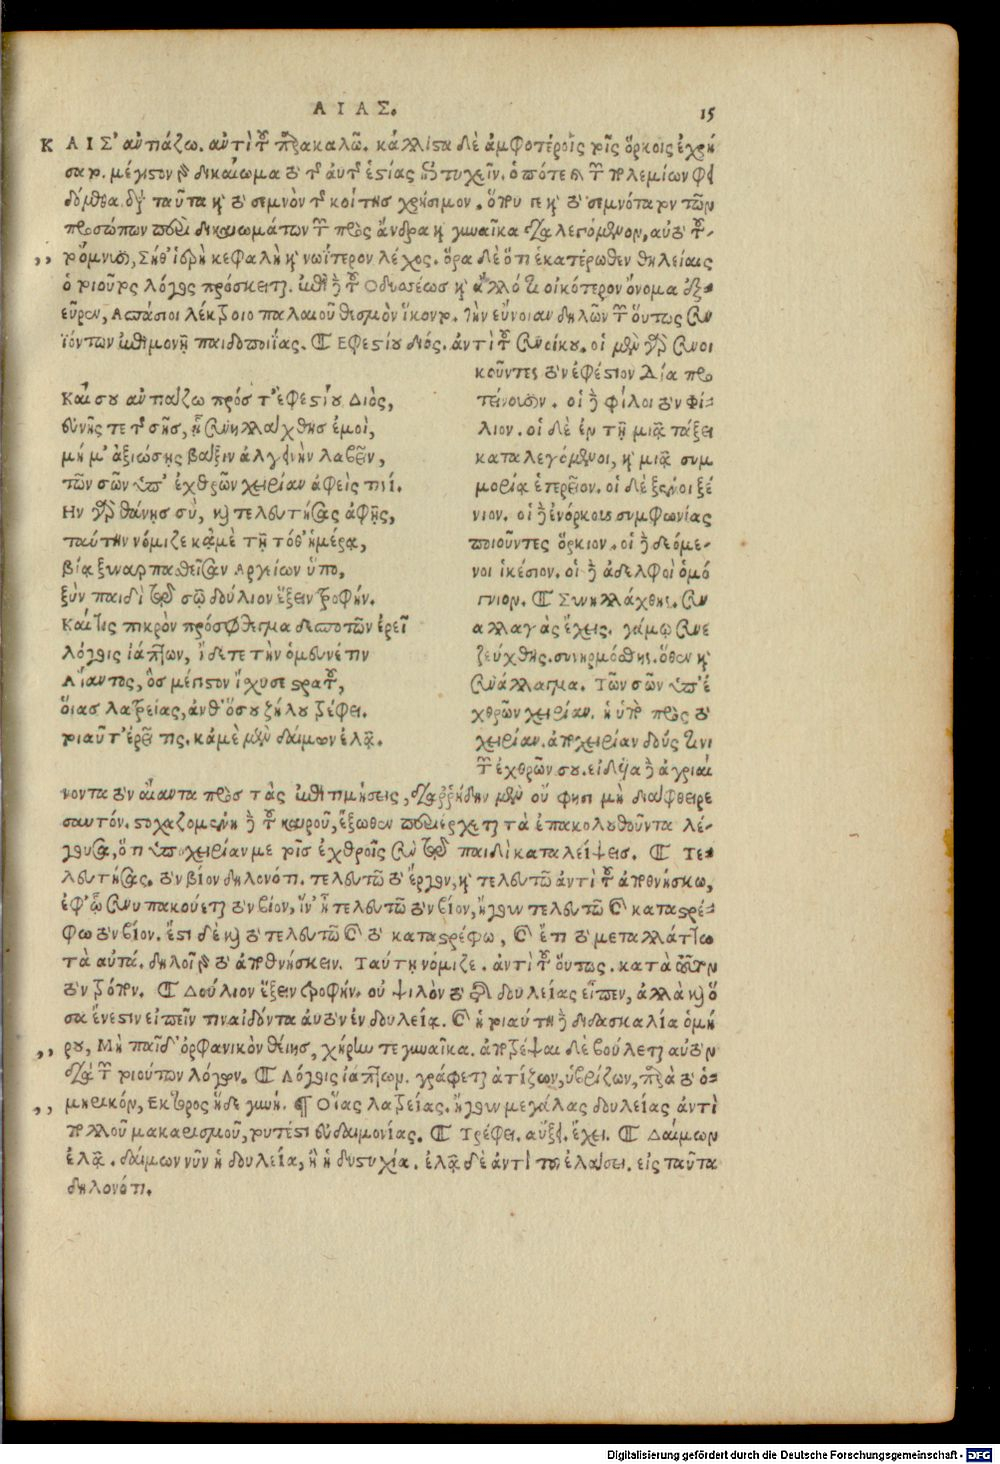 ΑΙΑΣ. 15
ΚΑΙ Σ' ἀντιάζω. ἀντὶ τοῦ παρακαλῶ. κάλλιστα δὲ ἀμφοτέροις τοῖς ὅρκοις ἐχρή
σατο. μέγιστον γὰρ δικαίωμα τὸ τῆς αὐτῆς ἑστίας τυχεῖν. ὁπότε τῶν πολεμίων φει
δόμεθα διὰ ταῦτα καὶ τὸ σεμνὸν τῆς κοίτης χρήσιμον. ὅπου τι καὶ τὸ σεμνότατον τῶν
προσώπων ποιεῖ δικαιωμάτων τῶν πρὸς ἄνδρα καὶ γυναῖκα διαλεγόμενον, αὐτὸ τοῦ-
,, τό μησι, Σῆθ' ἱερὴ κεφαλὴ καὶ νωΐτερον λέχος. ὅρα δὲ ὅτι ἑκατέρωθεν θηλείαις
ὁ τοιοῦτος λόγος πρόσκειται. ἐπὶ δὲ τοῦ Ὀδυσσέως καὶ ἄλλό τι οἰκότερον ὄνομα ἐξ-
εῦρεν, Ἀσπάσιοι λέκτροιο παλαιοῦ θεσμὸν ἵκοντο. τὴν εὔνοιαν δηλῶν τῶν οὕτως συν
ϊόντων ἐπὶ μονῇ παιδοποιΐας. ¶ Ἐφεστίου διός. ἀντὶ τοῦ συνοίκου. οἱ μὲν γὰρ συνοι
κοῦντες τὸν ἐφέστιον Δία προ
τείνουσιν. οἱ δὲ φίλοι τὸν φί-
λιον. οἱ δὲ ἐν τῇ μιᾷ τάξει
καταλεγόμενοι, καὶ μιᾷ συμ
μορίᾳ ἑταιρεῖον. οἱ δὲ ξένοι ξέ
νιον. οἱ δὲ ἐνόρκους συμφωνίας
ποιοῦντες ὅρκιον. οἱ δὲ δεόμε-
νοι ἱκέσιον. οἱ δὲ ἀδελφοὶ ὁμό
γνιον. ¶ Συνηλλάχθης. συν
αλλαγὰς ἔχεις. γάμῳ συνε
ζεύχθης. συνηρμόσθης. ὅθεν καὶ
συνάλλαγμα. Τῶν σῶν ὑπ' ἐ
χθρῶν χειρίαν. ἡ ὑπὸ πρὸς τὸ
χειρίαν. ὑποχειρίαν δούς τινι
τῶν ἐχθρῶν σου. εἰδυῖα δὲ ἀγριαί
Καί σου ἀντιάζω πρός τ' ἐφεστίου Διὸς,
εὐνῆς τε τῆς σῆς, ᾗ συνηλλάχθης ἐμοὶ,
μή μ' ἀξιώσῃς βάξιν ἀλγεινὴν λαβεῖν,
τῶν σῶν ὑπ' ἐχθρῶν χειρίαν ἀφεὶς τινί.
Ην γὰρ θάνῃς σὺ, καὶ τελευτήσας ἀφῇς,
ταύτην νόμιζε κᾀμὲ τῇ τόθ' ἡμέρᾳ,
βίᾳ ξυναρπασθεῖσαν Ἀργείων ὕπο,
ξὺν παιδὶ τῷ σῷ δούλιον ἕξειν τροφήν.
Καί τις πικρὸν πρόσφθεγμα δεσποτῶν ἐρεῖ
λόγοις ἰάπτων, ἴδετε τὴν ὁμευνέτιν
Αἴαντος, ὃς μέγιστον ἴσχυσε στρατοῦ,
οἵας λατρείας, ἀνθ' ὅσου ζήλου τρέφει.
τοιαῦτ' ἐρεῖ τις. κᾀμὲ μὲν δαίμων ἐλᾷ.
νοντα τὸν αἴαντα πρὸς τὰς ἐπιτιμήσεις, διαρρήδην μὲν οὔ φησι μὴ διαφθεῖρε
σαυτόν. στοχαζομένη δὲ τοῦ καιροῦ, ἔξωθεν περιέρχεται τὰ ἐπακολουθοῦντα λέ-
γουσα, ὅτι ὑποχειρίαν με τοῖς ἐχθροῖς σὺν τῷ παιδὶ καταλείψεις. ¶ Τε-
λευτήσας. τὸν βίον δηλονότι. τελευτῶ τὸ ἔργον, καὶ τελευτῶ ἀντὶ τοῦ ἀποθνήσκω,
ἐφ' ᾧ συνυπακούεται τὸν βίον, ἵν' ᾖ τελευτῶ τὸν βίον, ἤγουν τελευτῶ καὶ καταστρέ-
φω τὸν βίον. ἔστι δὲ καὶ τὸ τελευτῶ καὶ τὸ καταστρέφω, καὶ ἔτι τὸ μεταλλάττω
τὰ αὐτά. δηλοῖ γὰρ τὸ ἀποθνήσκειν. Ταύτῃ νόμιζε. ἀντὶ τοῦ οὕτως. κατὰ τοῦτον
τὸν τρόπον. ¶ Δούλιον ἕξειν τροφήν. οὐ ψιλὸν τὸ τῆς δουλείας εἶπεν, ἀλλὰ καὶ ὅ
σα ἔνεστιν εἰπεῖν τινα ἰδόντα αὐτὸν ἐν δουλείᾳ. καὶ ἡ τοιαύτη δὲ διδασκαλία ὁμή
,, ρου, Μὴ παῖδ' ὀρφανικὸν θείῃς, χήρην τε γυναῖκα. ἀποτρέψαι δὲ βούλεται αὐτὸν
διὰ τῶν τοιούτων λόγων. ¶ Λόγοις ἰάπτων. γράφεται ἀτίζων, ὑβρίζων, παρὰ τὸ ὁ-
,, μηρικόν, Ἕκτορος ἥδε γυνή. ¶ Οἵας λατρείας. ἤγουν μεγάλας δουλείας ἀντὶ
πολλοῦ μακαρισμοῦ, τουτέστι εὐδαιμονίας. ¶ Τρέφει. αὔξει. ἔχει. ¶ Δαίμων
ἐλᾷ. δαίμων νῦν ἡ δουλεία, ἢ ἡ δυστυχία. ἐλᾷ δὲ ἀντὶ τοῦ ἐλάσει. εἰς ταῦτα
δηλονότι.
Digitalisierung gefördert durch die Deutsche Forschungsgemeinschaft - DFG